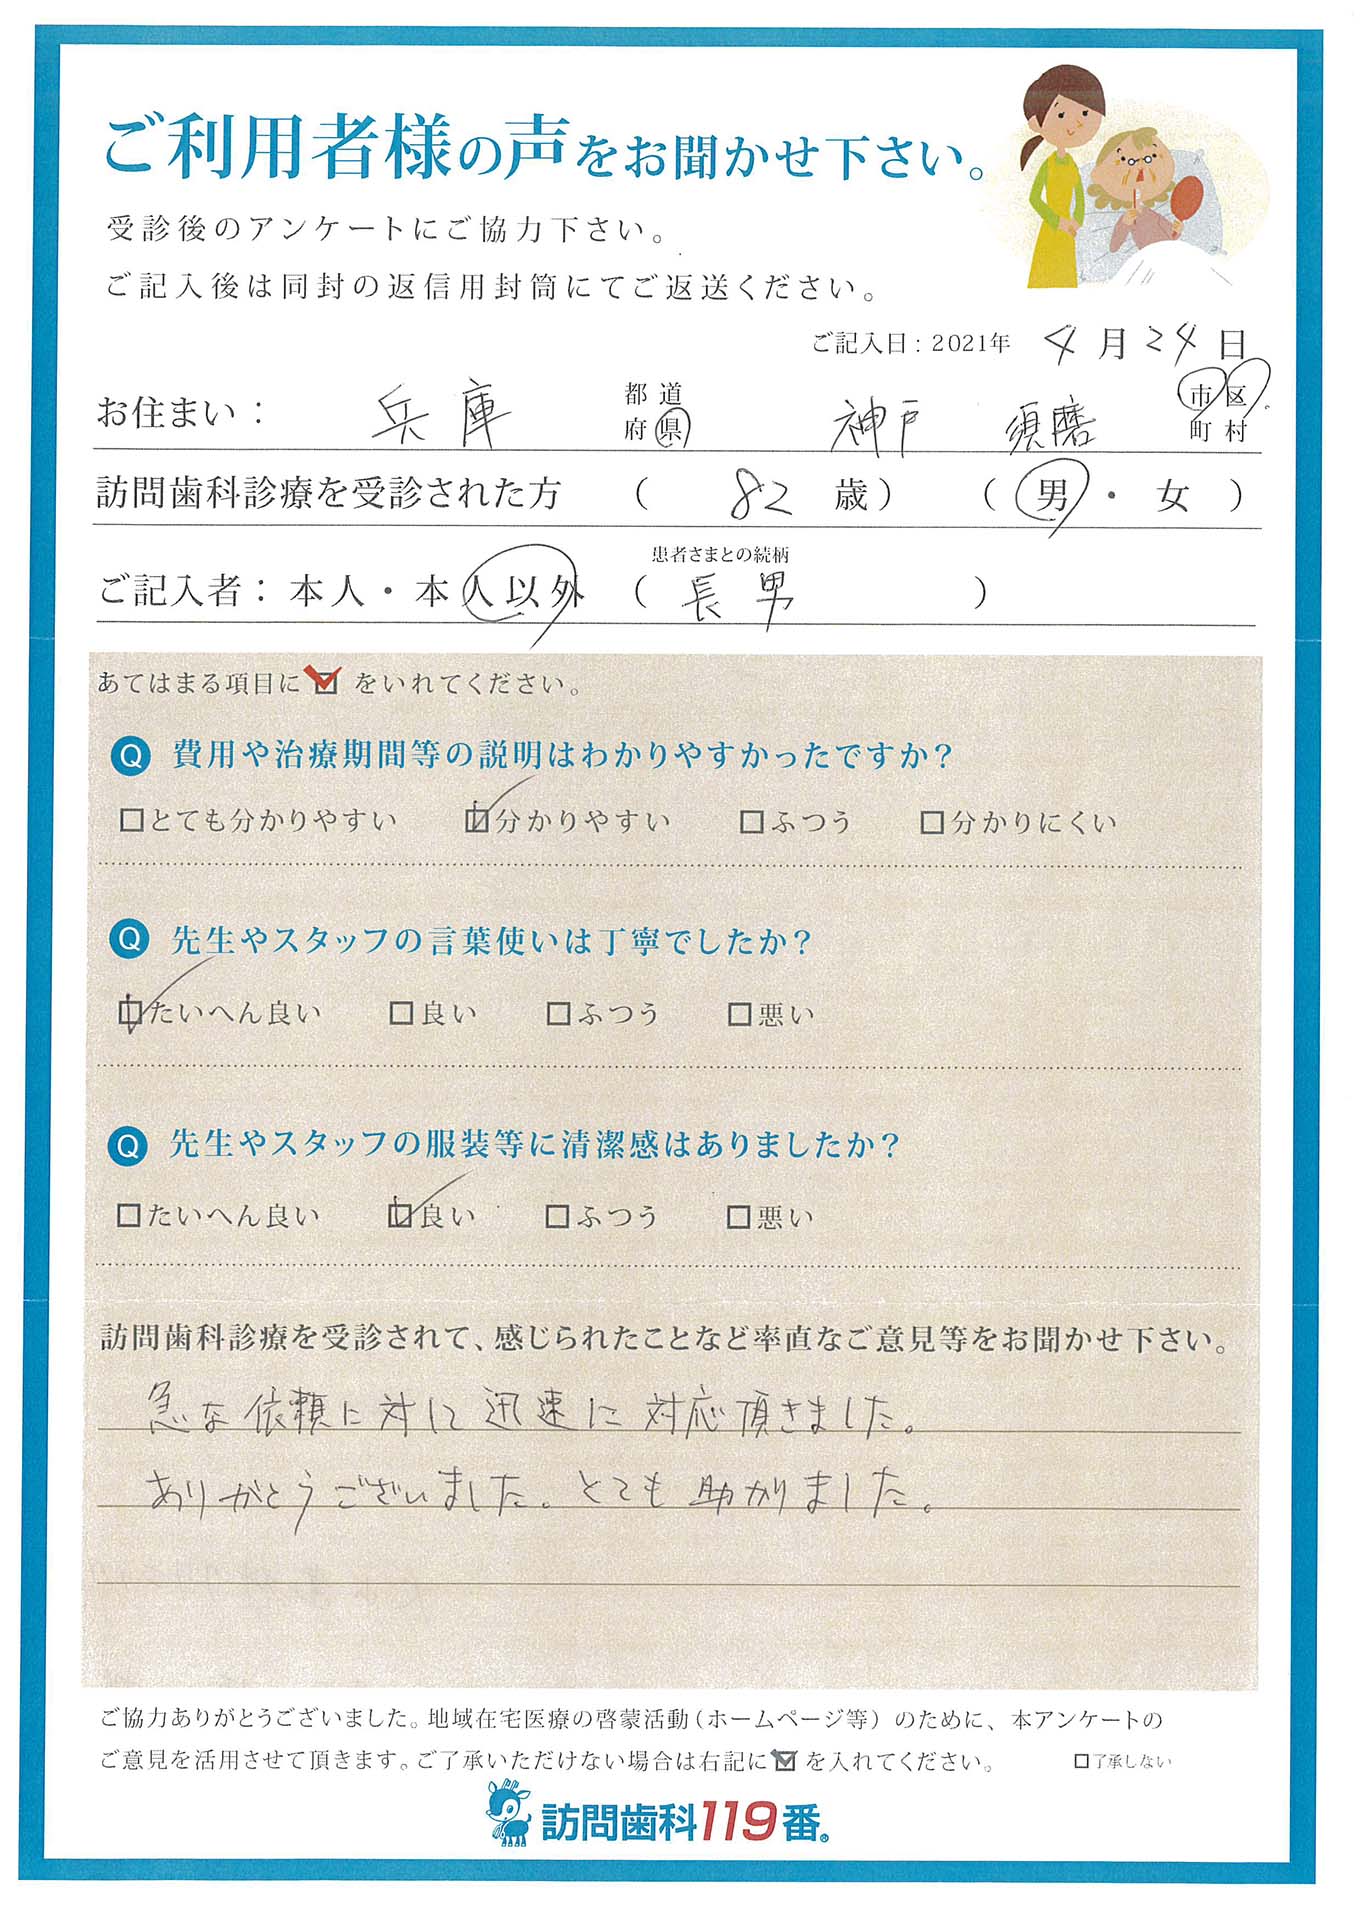 ご利用者様の声をお聞かせ下さい。
受診後のアンケートにご協力下さい。
ご記入後は同封の返信用封筒にてご返送ください。
ご記入日：2021年 4月24日
お住まい： 兵庫 都道府県 神戸 須磨 市区町村
訪問歯科診療を受診された方 （ 82 歳） （ 男 ・ 女 ）
患者さまとの続柄
ご記入者：本人・本人以外 （ 長男 ）
あてはまる項目に☑をいれてください。
Q 費用や治療期間等の説明はわかりやすかったですか？
□とても分かりやすい ☑分かりやすい □ふつう □分かりにくい
Q 先生やスタッフの言葉使いは丁寧でしたか？
☑たいへん良い □良い □ふつう □悪い
Q 先生やスタッフの服装等に清潔感はありましたか？
□たいへん良い ☑良い □ふつう □悪い
訪問歯科診療を受診されて、感じられたことなど率直なご意見等をお聞かせ下さい。
急な依頼に対して迅速に対応頂きました。
ありがとうございました。とても助かりました。
ご協力ありがとうございました。地域在宅医療の啓蒙活動（ホームページ等）のために、本アンケートの
ご意見を活用させて頂きます。ご了承いただけない場合は右記に☑を入れてください。 □了承しない
訪問歯科119番®